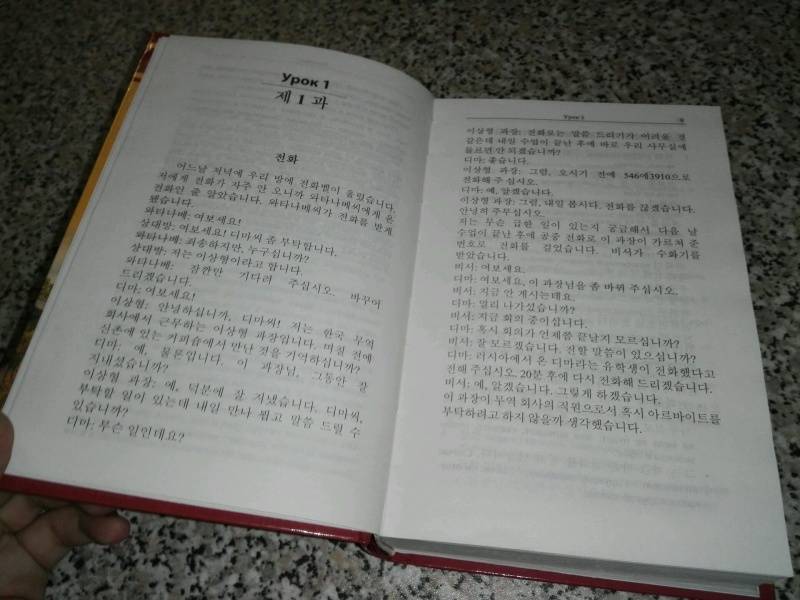 Урок 1
제 1 과
전화
어느날 저녁에 우리 방에 전화벨이 울렸습니다.
저에게 전화가 자주 안 오니까 와타나베씨에게 온
전화인 줄 알았습니다. 와타나베씨가 전화를 받게
됐습니다.
와타나베: 여보세요!
상대방: 여보세요! 디마씨 좀 부탁합니다.
와타나베: 죄송하지만, 누구십니까?
상대방: 저는 이상형이라고 합니다.
와타나베: 잠깐만 기다려 주십시오. 바꾸어
드리겠습니다.
디마: 여보세요!
이상형: 안녕하십니까, 디마씨! 저는 한국 무역
회사에서 근무하는 이상형 과장입니다. 며칠 전에
신촌에 있는 커피숍에서 만난 것을 기억하십니까?
디마: 예, 물론입니다. 이 과장님, 그동안 잘
지내셨습니까?
이상형 과장: 예, 덕분에 잘 지냈습니다. 디마씨,
부탁할 일이 있는데 내일 만나 뵙고 말씀 드릴 수
있습니까?
디마: 무슨 일인데요?
Урок 1
이상형 과장: 전화로는 말씀 드리기가 어려울 것
같은데 내일 수업이 끝난 후에 바로 우리 사무실에
들르면 안 되겠습니까?
디마: 좋습니다.
이상형 과장: 그럼, 오시기 전에 546에3910으로
전화해 주십시오.
디마: 예, 알겠습니다.
이상형 과장: 그럼, 내일 봅시다. 전화를 끊겠습니다.
안녕히 주무십시오.
저는 무슨 급한 일이 있는지 궁금해서 다음 날
수업이 끝난 후에 공중 전화로 이 과장이 가르쳐 준
번호로 전화를 걸었습니다. 비서가 수화기를
받았습니다.
비서: 여보세요.
디마: 여보세요, 이 과장님을 좀 바꿔 주십시오.
비서: 지금 안 계시는데요.
디마: 멀리 나가셨습니까?
비서: 지금 회의 중이십니다.
디마: 혹시 회의가 언제쯤 끝날지 모르십니까?
비서: 잘 모르겠습니다. 전할 말씀이 있으십니까?
디마: 러시아에서 온 디마라는 유학생이 전화했다고
전해 주십시오. 20분 후에 다시 전화해 드리겠습니다.
비서: 예, 알겠습니다. 그렇게 하겠습니다.
이 과장이 무역 회사의 직원으로서 혹시 아르바이트를
부탁하려고 하지 않을까 생각했습니다.